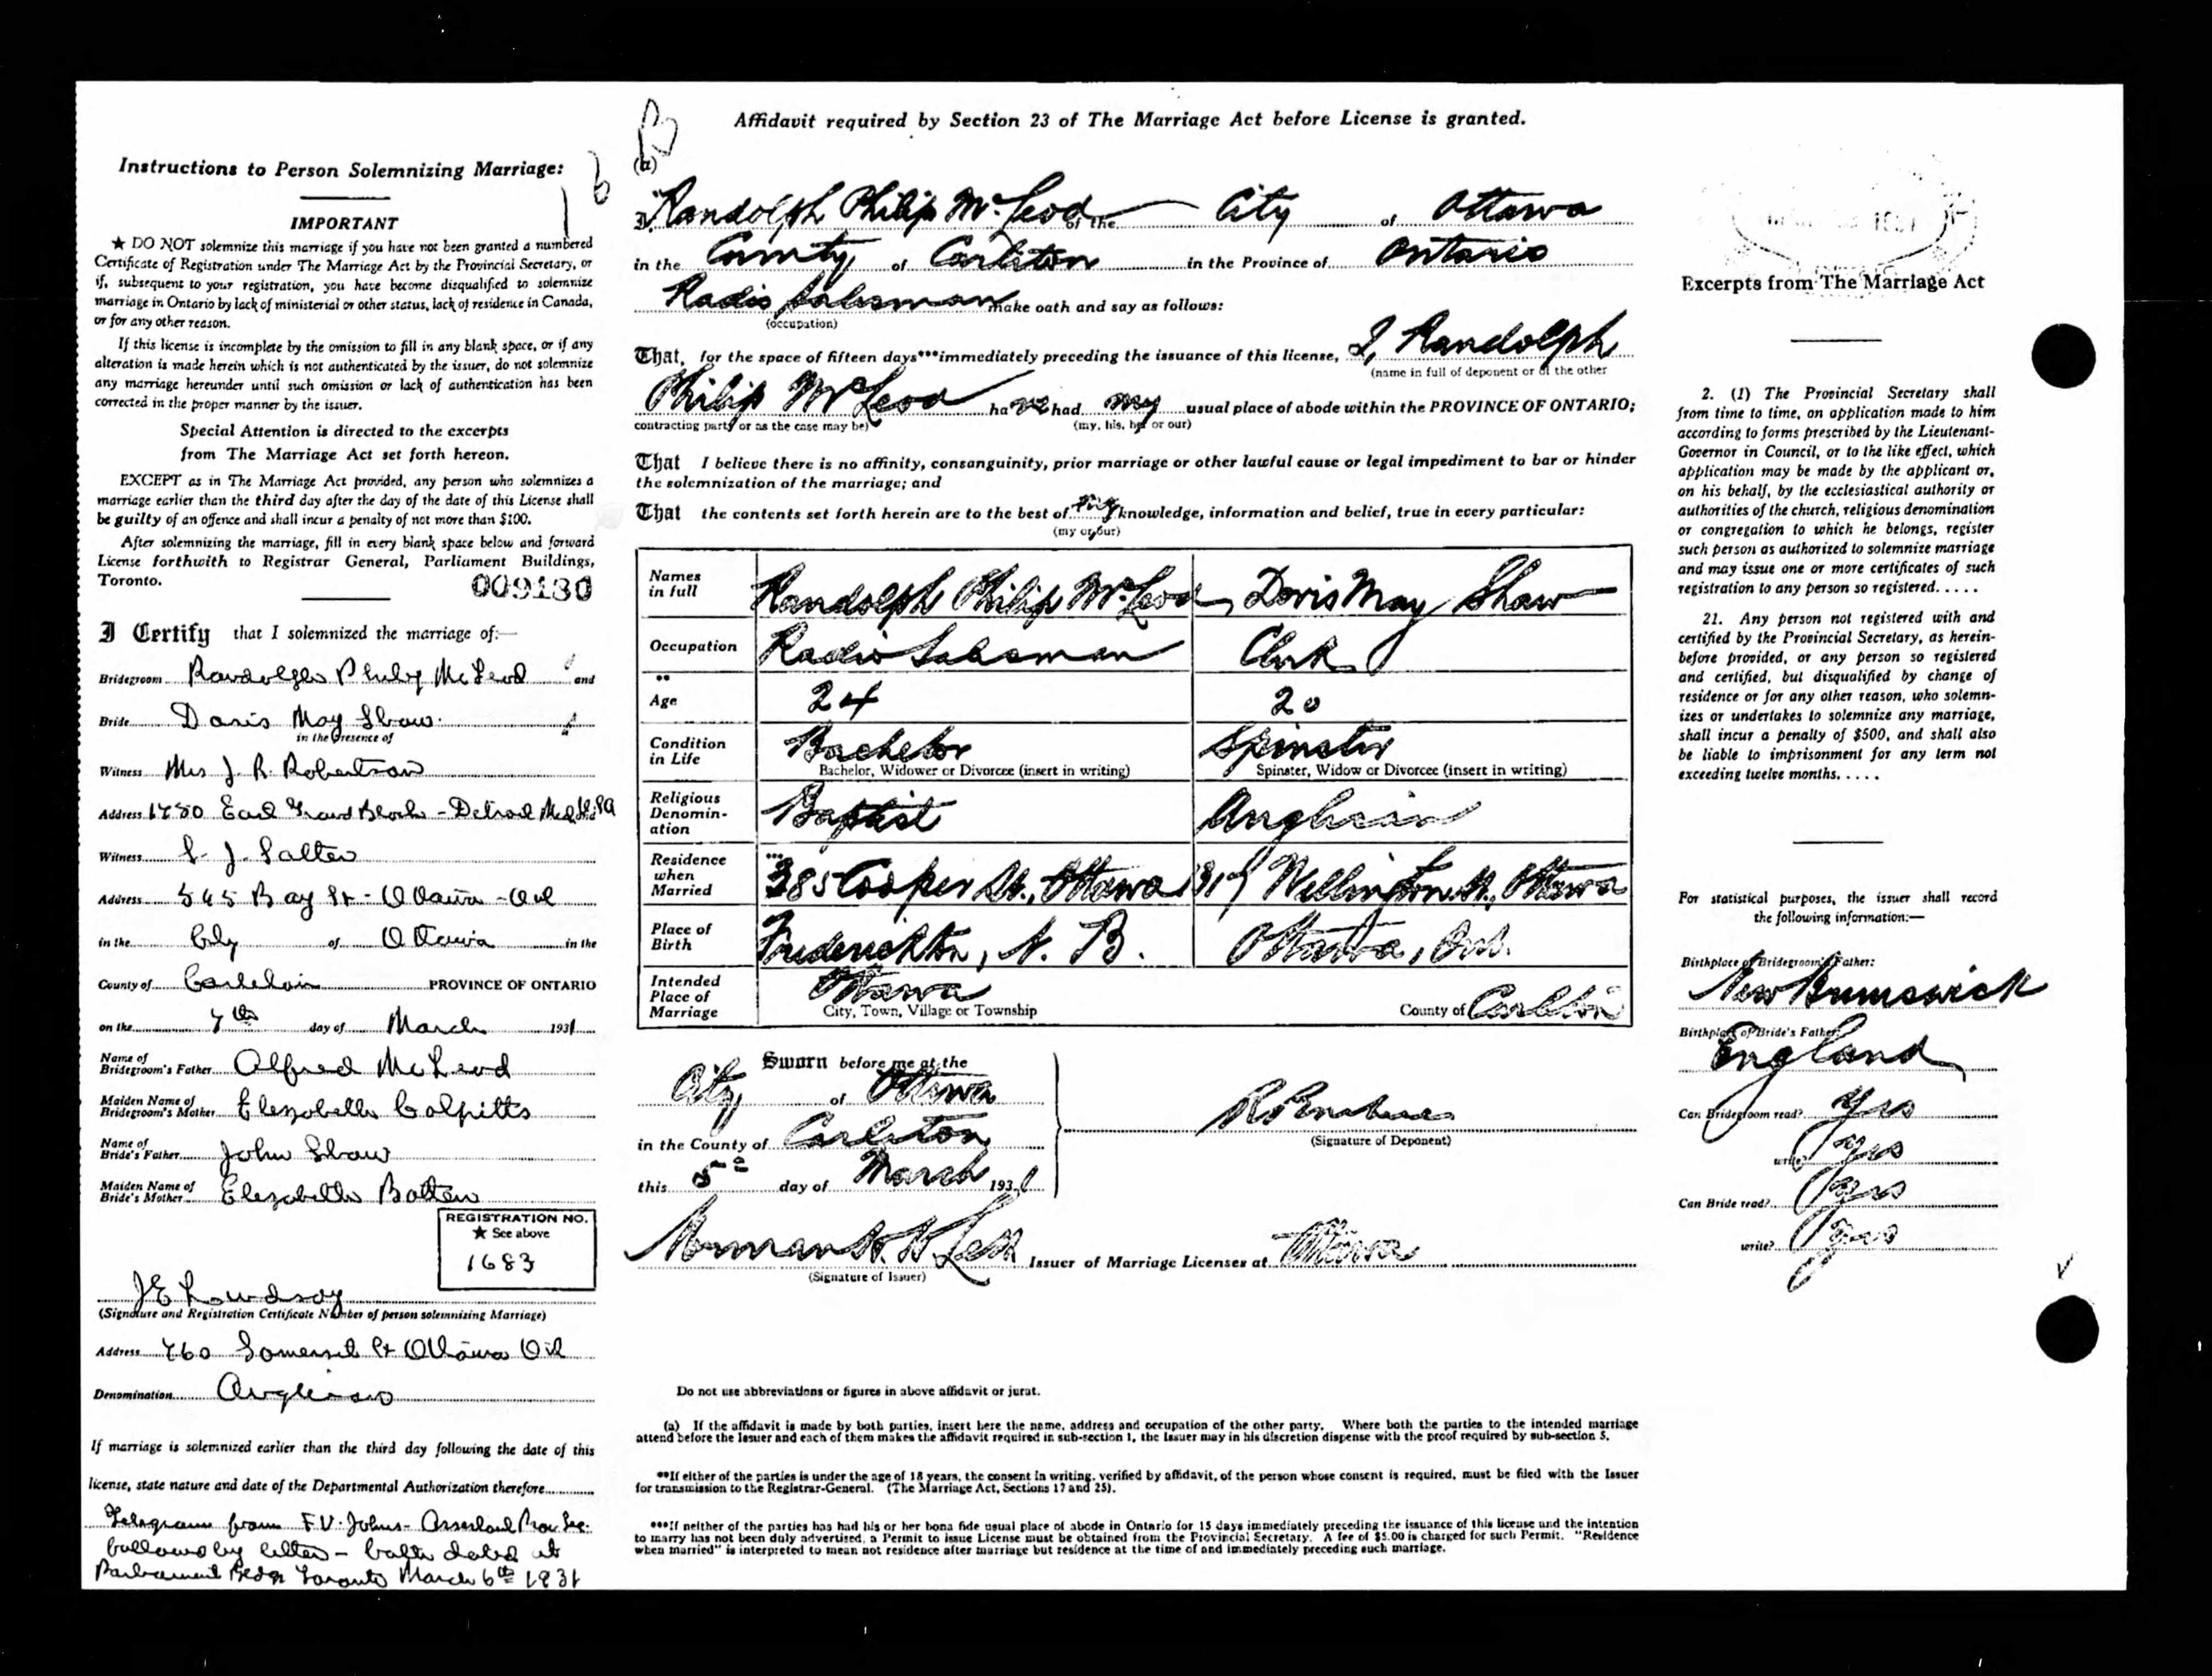 Instructions to Person Solemnizing Marriage:
IMPORTANT
★ DO NOT solemnize this marriage if you have not been granted a numbered
Certificate of Registration under The Marriage Act by the Provincial Secretary, or
if, subsequent to your registration, you have become disqualified to solemnize
marriage in Ontario by lack of ministerial or other status, lack of residence in Canada,
or for any other reason.
If this license is incomplete by the omission to fill in any blank space, or if any
alteration is made herein which is not authenticated by the issuer, do not solemnize
any marriage hereunder until such omission or lack of authentication has been
corrected in the proper manner by the issuer.
Special Attention is directed to the excerpts
from The Marriage Act set forth hereon.
EXCEPT as in The Marriage Act provided, any person who solemnizes a
marriage earlier than the third day after the day of the date of this License shall
be guilty of an offence and shall incur a penalty of not more than $100.
After solemnizing the marriage, fill in every blank space below and forward
License forthwith to Registrar General, Parliament Buildings,
Toronto.
009130
I Certify that I solemnized the marriage of:—
Bridegroom Randolph Philip McLeod and
Bride Doris May Shaw
in the presence of
Witness Mrs J. R. Robertson
Address 1780 Earl Grand Block - Detroit
Witness J. Salter
Address 545 Bay St - Ottawa - Ont
in the City of Ottawa in the
County of Carleton PROVINCE OF ONTARIO
on the 7th day of March 1931
Name of
Bridegroom's Father Alfred McLeod
Maiden Name of
Bridegroom's Mother Elezabeth Colpitts
Name of
Bride's Father John Shaw
Maiden Name of
Bride's Mother Elezabeth Batten
REGISTRATION NO.
★ See above
1683
J E Lindsay
(Signature and Registration Certificate Number of person solemnizing Marriage)
Address 760 Somerset St Ottawa Ont
Denomination Anglican
If marriage is solemnized earlier than the third day following the date of this
license, state nature and date of the Departmental Authorization therefore
Telegram from F.V. Johns - Assistant Prov Sec.
followed by letter - latter dated at
Parliament Bldgs Toronto March 6th 1931
Affidavit required by Section 23 of The Marriage Act before License is granted.
(a)
I, Randolph Philip McLeod of the City of Ottawa
in the County of Carleton in the Province of Ontario
Radio Salesman make oath and say as follows:
(occupation)
That, for the space of fifteen days***immediately preceding the issuance of this license, I, Randolph
(name in full of deponent or of the other
Philip McLeod have had my usual place of abode within the PROVINCE OF ONTARIO;
contracting party or as the case may be) (my, his, her or our)
That I believe there is no affinity, consanguinity, prior marriage or other lawful cause or legal impediment to bar or hinder
the solemnization of the marriage; and
That the contents set forth herein are to the best of my knowledge, information and belief, true in every particular:
(my or our)
Names
in full Randolph Philip McLeod Doris May Shaw
Occupation Radio Salesman Clerk
**
Age 24 20
Condition
in Life Bachelor Spinster
Bachelor, Widower or Divorcee (insert in writing) Spinster, Widow or Divorcee (insert in writing)
Religious
Denomin-
ation Baptist Anglican
Residence
when
Married *** 385 Cooper St., Ottawa 1317 Wellington St., Ottawa
Place of
Birth Fredericton, N. B. Ottawa, Ont.
Intended
Place of
Marriage Ottawa County of Carleton
City, Town, Village or Township
Sworn before me at the
City of Ottawa
in the County of Carleton
(Signature of Deponent)
this 5th day of March 1931
Issuer of Marriage Licenses at Ottawa
(Signature of Issuer)
Do not use abbreviations or figures in above affidavit or jurat.
(a) If the affidavit is made by both parties, insert here the name, address and occupation of the other party. Where both the parties to the intended marriage
attend before the Issuer and each of them makes the affidavit required in sub-section 1, the Issuer may in his discretion dispense with the proof required by sub-section 5.
**If either of the parties is under the age of 18 years, the consent in writing, verified by affidavit, of the person whose consent is required, must be filed with the Issuer
for transmission to the Registrar-General. (The Marriage Act, Sections 17 and 25).
***If neither of the parties has had his or her bona fide usual place of abode in Ontario for 15 days immediately preceding the issuance of this license and the intention
to marry has not been duly advertised, a Permit to issue License must be obtained from the Provincial Secretary. A fee of $5.00 is charged for such Permit. "Residence
when married" is interpreted to mean not residence after marriage but residence at the time of and immediately preceding such marriage.
Excerpts from The Marriage Act
2. (1) The Provincial Secretary shall
from time to time, on application made to him
according to forms prescribed by the Lieutenant-
Governor in Council, or to the like effect, which
application may be made by the applicant or,
on his behalf, by the ecclesiastical authority or
authorities of the church, religious denomination
or congregation to which he belongs, register
such person as authorized to solemnize marriage
and may issue one or more certificates of such
registration to any person so registered.....
21. Any person not registered with and
certified by the Provincial Secretary, as herein-
before provided, or any person so registered
and certified, but disqualified by change of
residence or for any other reason, who solemn-
izes or undertakes to solemnize any marriage,
shall incur a penalty of $500, and shall also
be liable to imprisonment for any term not
exceeding twelve months.....
For statistical purposes, the issuer shall record
the following information:—
Birthplace of Bridegroom's Father:
New Brunswick
Birthplace of Bride's Father:
England
Can Bridegroom read? Yes
write? Yes
Can Bride read? Yes
write? Yes